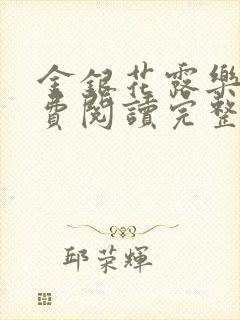 金銀花露樂
費閱讀完整
邱荣輝